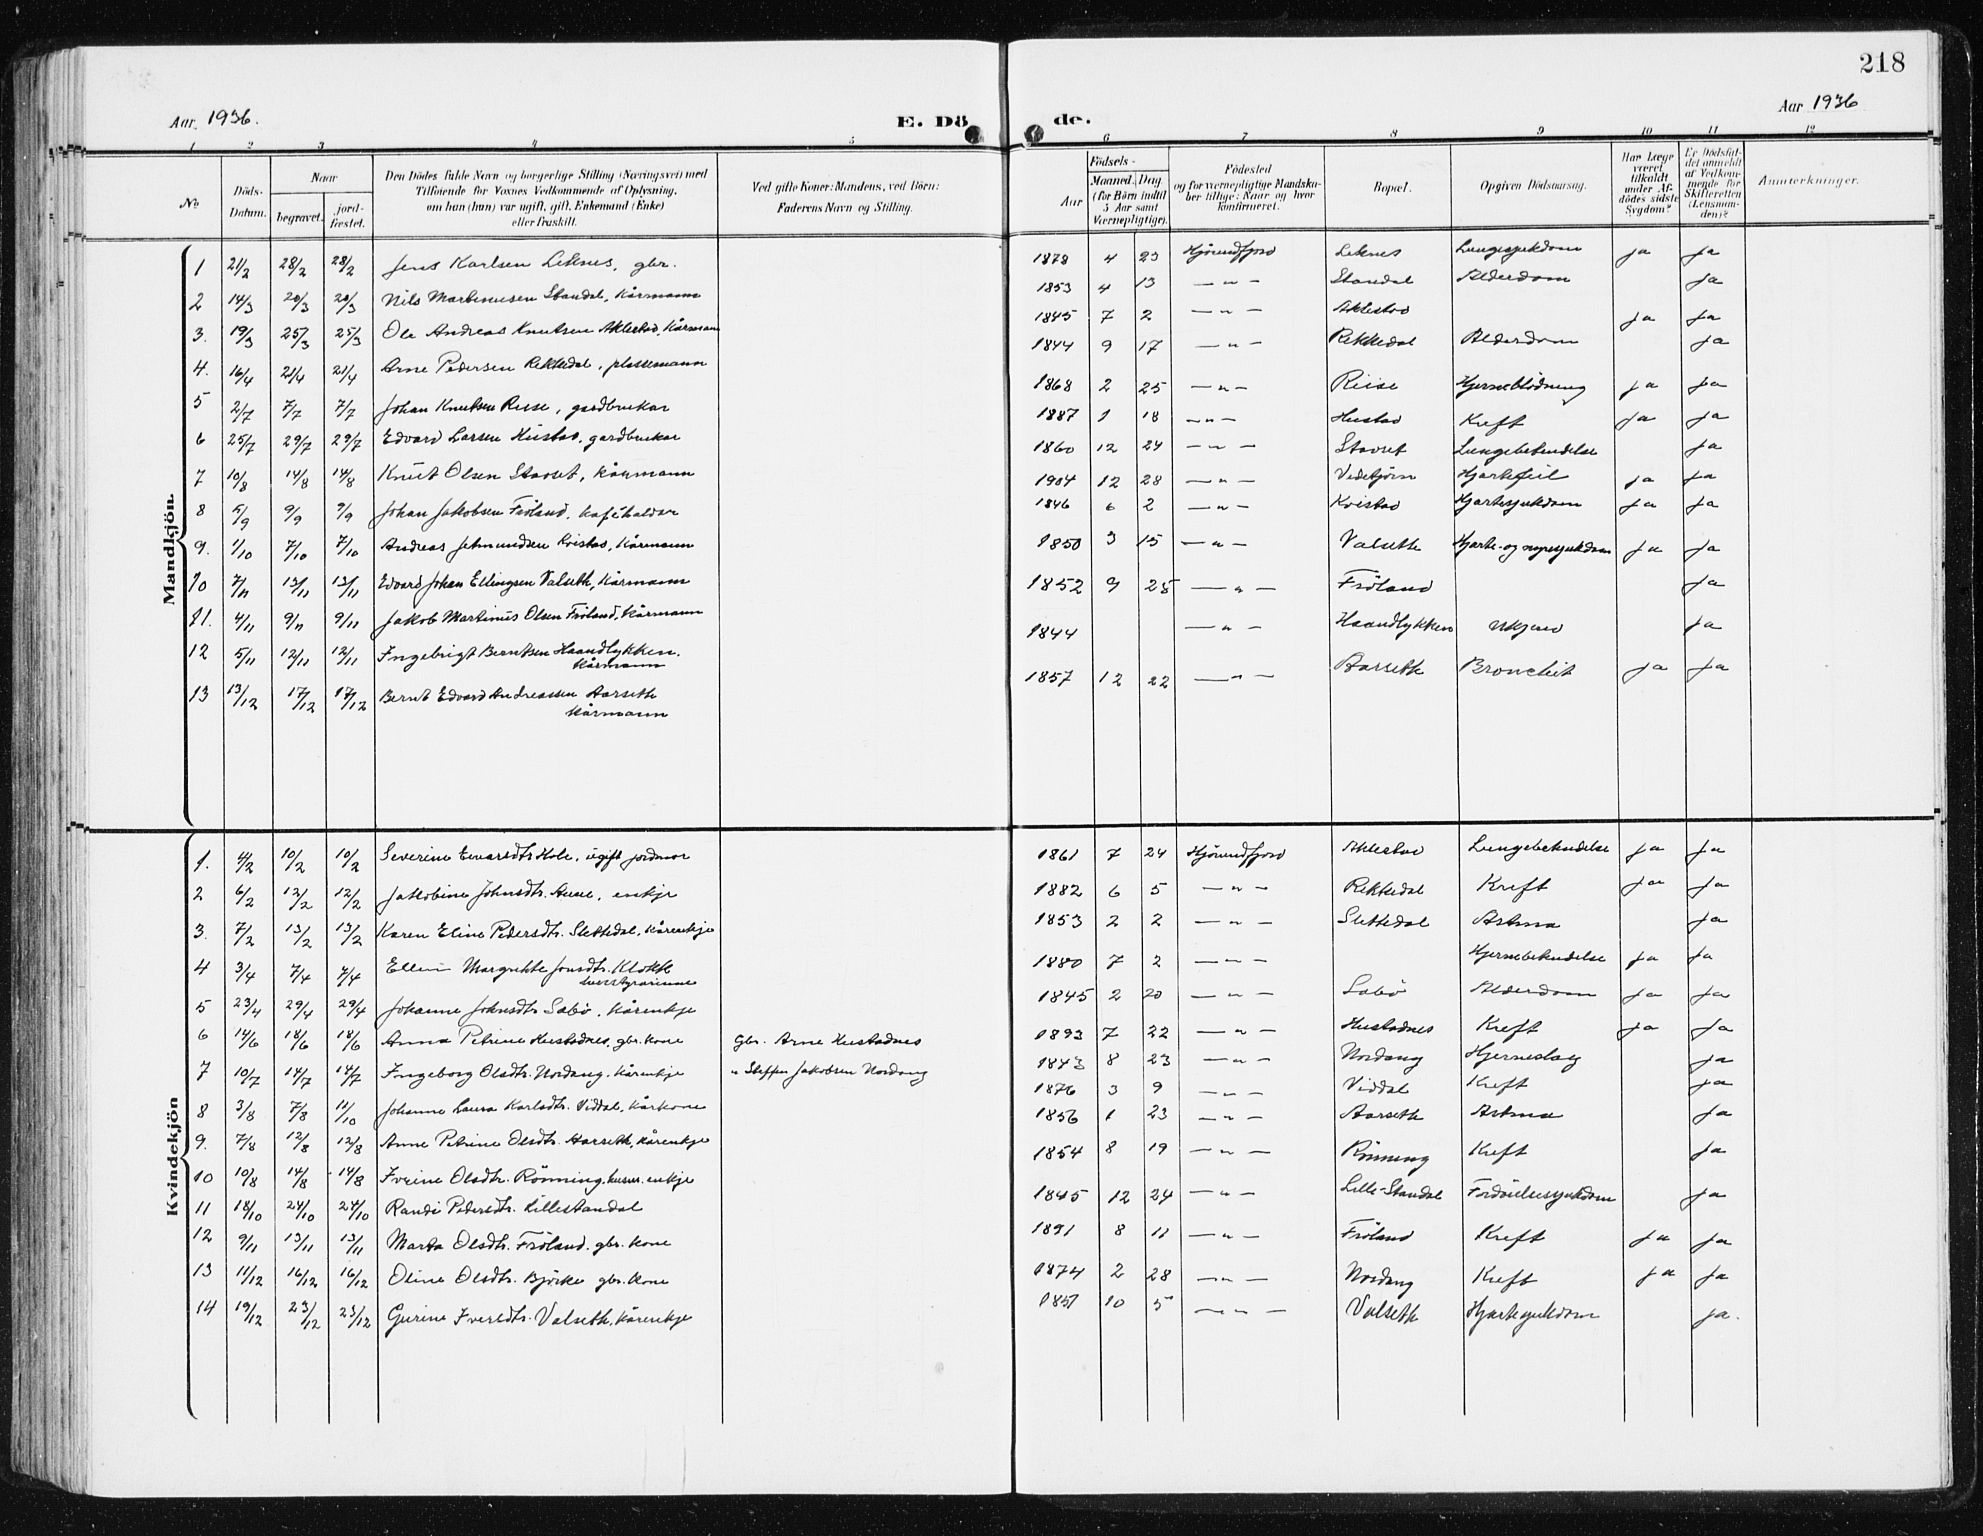 218
Aar 1936. E. Dö
de. Aar 1936
1 2 3 4 5 6 7 8 9 10 11 12
No Döds-Datum. Naar begravet. jordfæstet. Den Dödes fulde Navn og borgerlige Stilling (Næringsvei) med Tilföiende for Voxnes Vedkommende af Oplysning, om han (hun) var ugift, gift, Enkemand (Enke) eller fraskilt. Ved gifte Koner: Mandens, ved Börn: Faderens Navn og Stilling.
Födsels- Aar Maaned. Dag (for Börn indtil 5 Aar samt Værnepligtige). Födested og for værnepligtige Mandskaber tillige: Naar og hvor konfirmeret. Bopæl. Opgiven Dödsaarsag. Har Læge været tilkaldt under Afdödes sidste Sygdom? Er Dödsfaldet anmeldt af Vedkommende for Skifteretten (Lensmanden)? Anmærkninger.
Mandkjön.
1 21/2 28/2 28/2 Jens Karlsen Leknes, gbr. 1878 4 23 Hjörundfjord Leknes Lungesjukdom ja ja
2 14/3 20/3 20/3 Nils Martinusen Standal, kårmann 1853 4 13 — " — Standal Alderdom ja
3. 19/3 25/3 25/3 Ole Andreas Knutsen Aklestad, Kårmann 1845 7 2 — " — Aklestad ja ja
4. 16/4 21/4 21/4 Arne Pedersen Rekkedal, plassemann 1844 9 17 — " — Rekkedal Alderdom ja
5 2/7 7/7 7/7 Johan Knutsen Riise, gardbrukar 1868 2 25 — " — Riise Hjerneblödning ja ja
6 25/7 29/7 29/7 Edvard Larsen Hustad, gardbrukar 1887 1 18 — " — Hustad Kreft ja ja
7 10/8 14/8 14/8 Knut Olsen Stavset, kårmann 1860 12 24 — " — Stavset Lungebetendelse ja
8 5/9 9/9 9/9 Johan Jakobsen Fröland, kaféhaldar 1904 12 28 — " — Videtjörn Hjartefeil ja ja
9. 1/10 7/10 7/10 Andreas Jetmundsen Kvistad, kårmann 1846 6 2 — " — Kvistad Hjartesjukdom ja ja
10 7/11 13/11 13/11 Edvard Johan Ellingsen Valseth, kårmann 1850 3 15 — " — Valseth Hjarte- og nyresjukdom ja ja
11. 4/11 9/11 9/11 Jakob Martinus Olsen Fröland, kårmann 1852 9 25 — " — Fröland ja
12 5/11 12/11 12/11 Ingebrigt Berntsen Haandlykken. kårmann 1844 — " — Haandlykken Ukjend ja
13 13/12 17/12 17/12 Bernt Edvard Andreassen Aarseth kårmann 1857 12 22 — " — Aarseth Bronchit ja ja
Kvindekjön
1. 4/2 10/2 10/2 Severine Evardtr Hole, ugift jordmor 1861 7 24 Hjörundfjord Aklestad Lungebetendelse ja ja
2 6/2 12/2 12/2 Jakobine Johnsdtr. Aure, enkje 1882 6 5 — " — Rekkedal Kreft ja ja
3. 7/2 13/2 13/2 Karen Eline Pedersdtr. Slettedal, kårenkje 1853 2 2 — " — Slettedal Astma ja
4 3/4 7/4 7/4 Ellen Margrethe Jonsdtr. Klokk 1880 7 2 — " — Hjernebetendelse ja ja
5 23/4 29/4 29/4 Johanne Johnsdtr Sæbö, kårenkje 1845 2 20 — " — Sæbö Alderdom ja ja
6 14/6 18/6 18/6 Anna Petrine Hustadnes, gbr. kone gbr. Arne Hustadnes 1893 7 22 — " — Hustadnes Kreft ja ja
7 10/7 14/7 14/7 Ingeborg Olsdtr. Nordang, kårenkje " Steffen Jakobsen Nordang 1843 8 23 — " — Nordang Hjerneslag ja
8 3/8 7/8 11/10 Johanne Laura Karlsdtr. Viddal, kårkone 1876 3 9 — " — Viddal Kreft ja
9. 7/8 12/8 12/8 Anne Petrine Olsdtr. Aarseth, kårenkje 1856 1 23 — " — Aarseth Astma ja
10 10/8 14/8 14/8 Iverine Olsdtr. Rönning, husm. enkje 1854 8 19 — " — Rönning Kreft ja
11 18/10 24/10 24/10 Randi Pedersdtr. Lillestandal 1845 12 24 — " — Lille-Standal Fordöielsessjukdom ja
12 9/11 13/11 13/11 Marta Olsdtr. Fröland. gbr. kone 1891 8 11 — " — Fröland Kreft ja ja
13 11/12 16/12 16/12 Oline Olsdtr. Björke gbr. kone 1874 2 28 — " — Nordang Kreft ja ja
14 19/12 23/12 23/12 Gurine Iversdtr. Valseth, kårenkje 1851 10 5 — " — Valseth Hjartesjukdom ja.